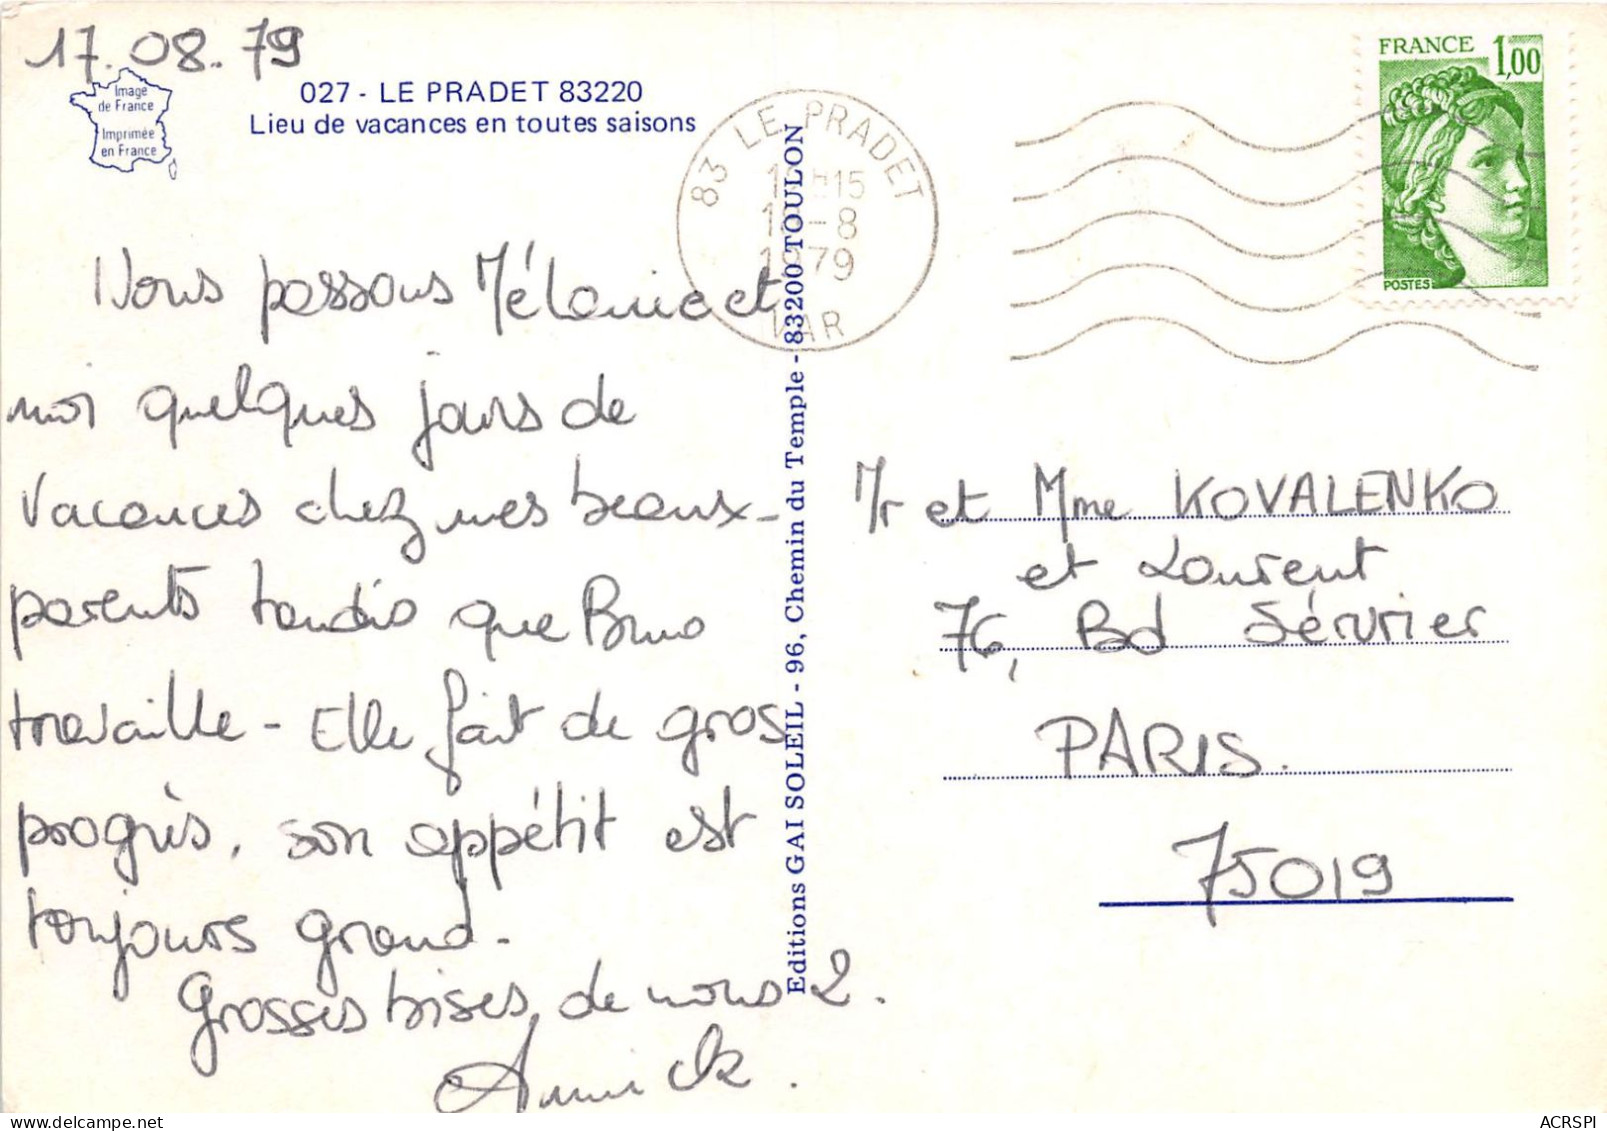 17.08.79
Image
de France
Imprimée
en France
027 - LE PRADET 83220
Lieu de vacances en toutes saisons
83 LE PRADET
15
18-8
1979
VAR
FRANCE 1,00
POSTES
Nous passons Mélanie et
moi quelques jours de
vacances chez mes beaux-
parents tandis que Bruno
travaille - Elle fait de gros
progrès, son appétit est
toujours grand -
Grosses bises de nous 2.
Annick.
Editions GAI SOLEIL - 96, Chemin du Temple - 83200 TOULON
Mr et Mme KOVALENKO
et Laurent
76, Bd Sérurier
PARIS.
75019
ACRSPI